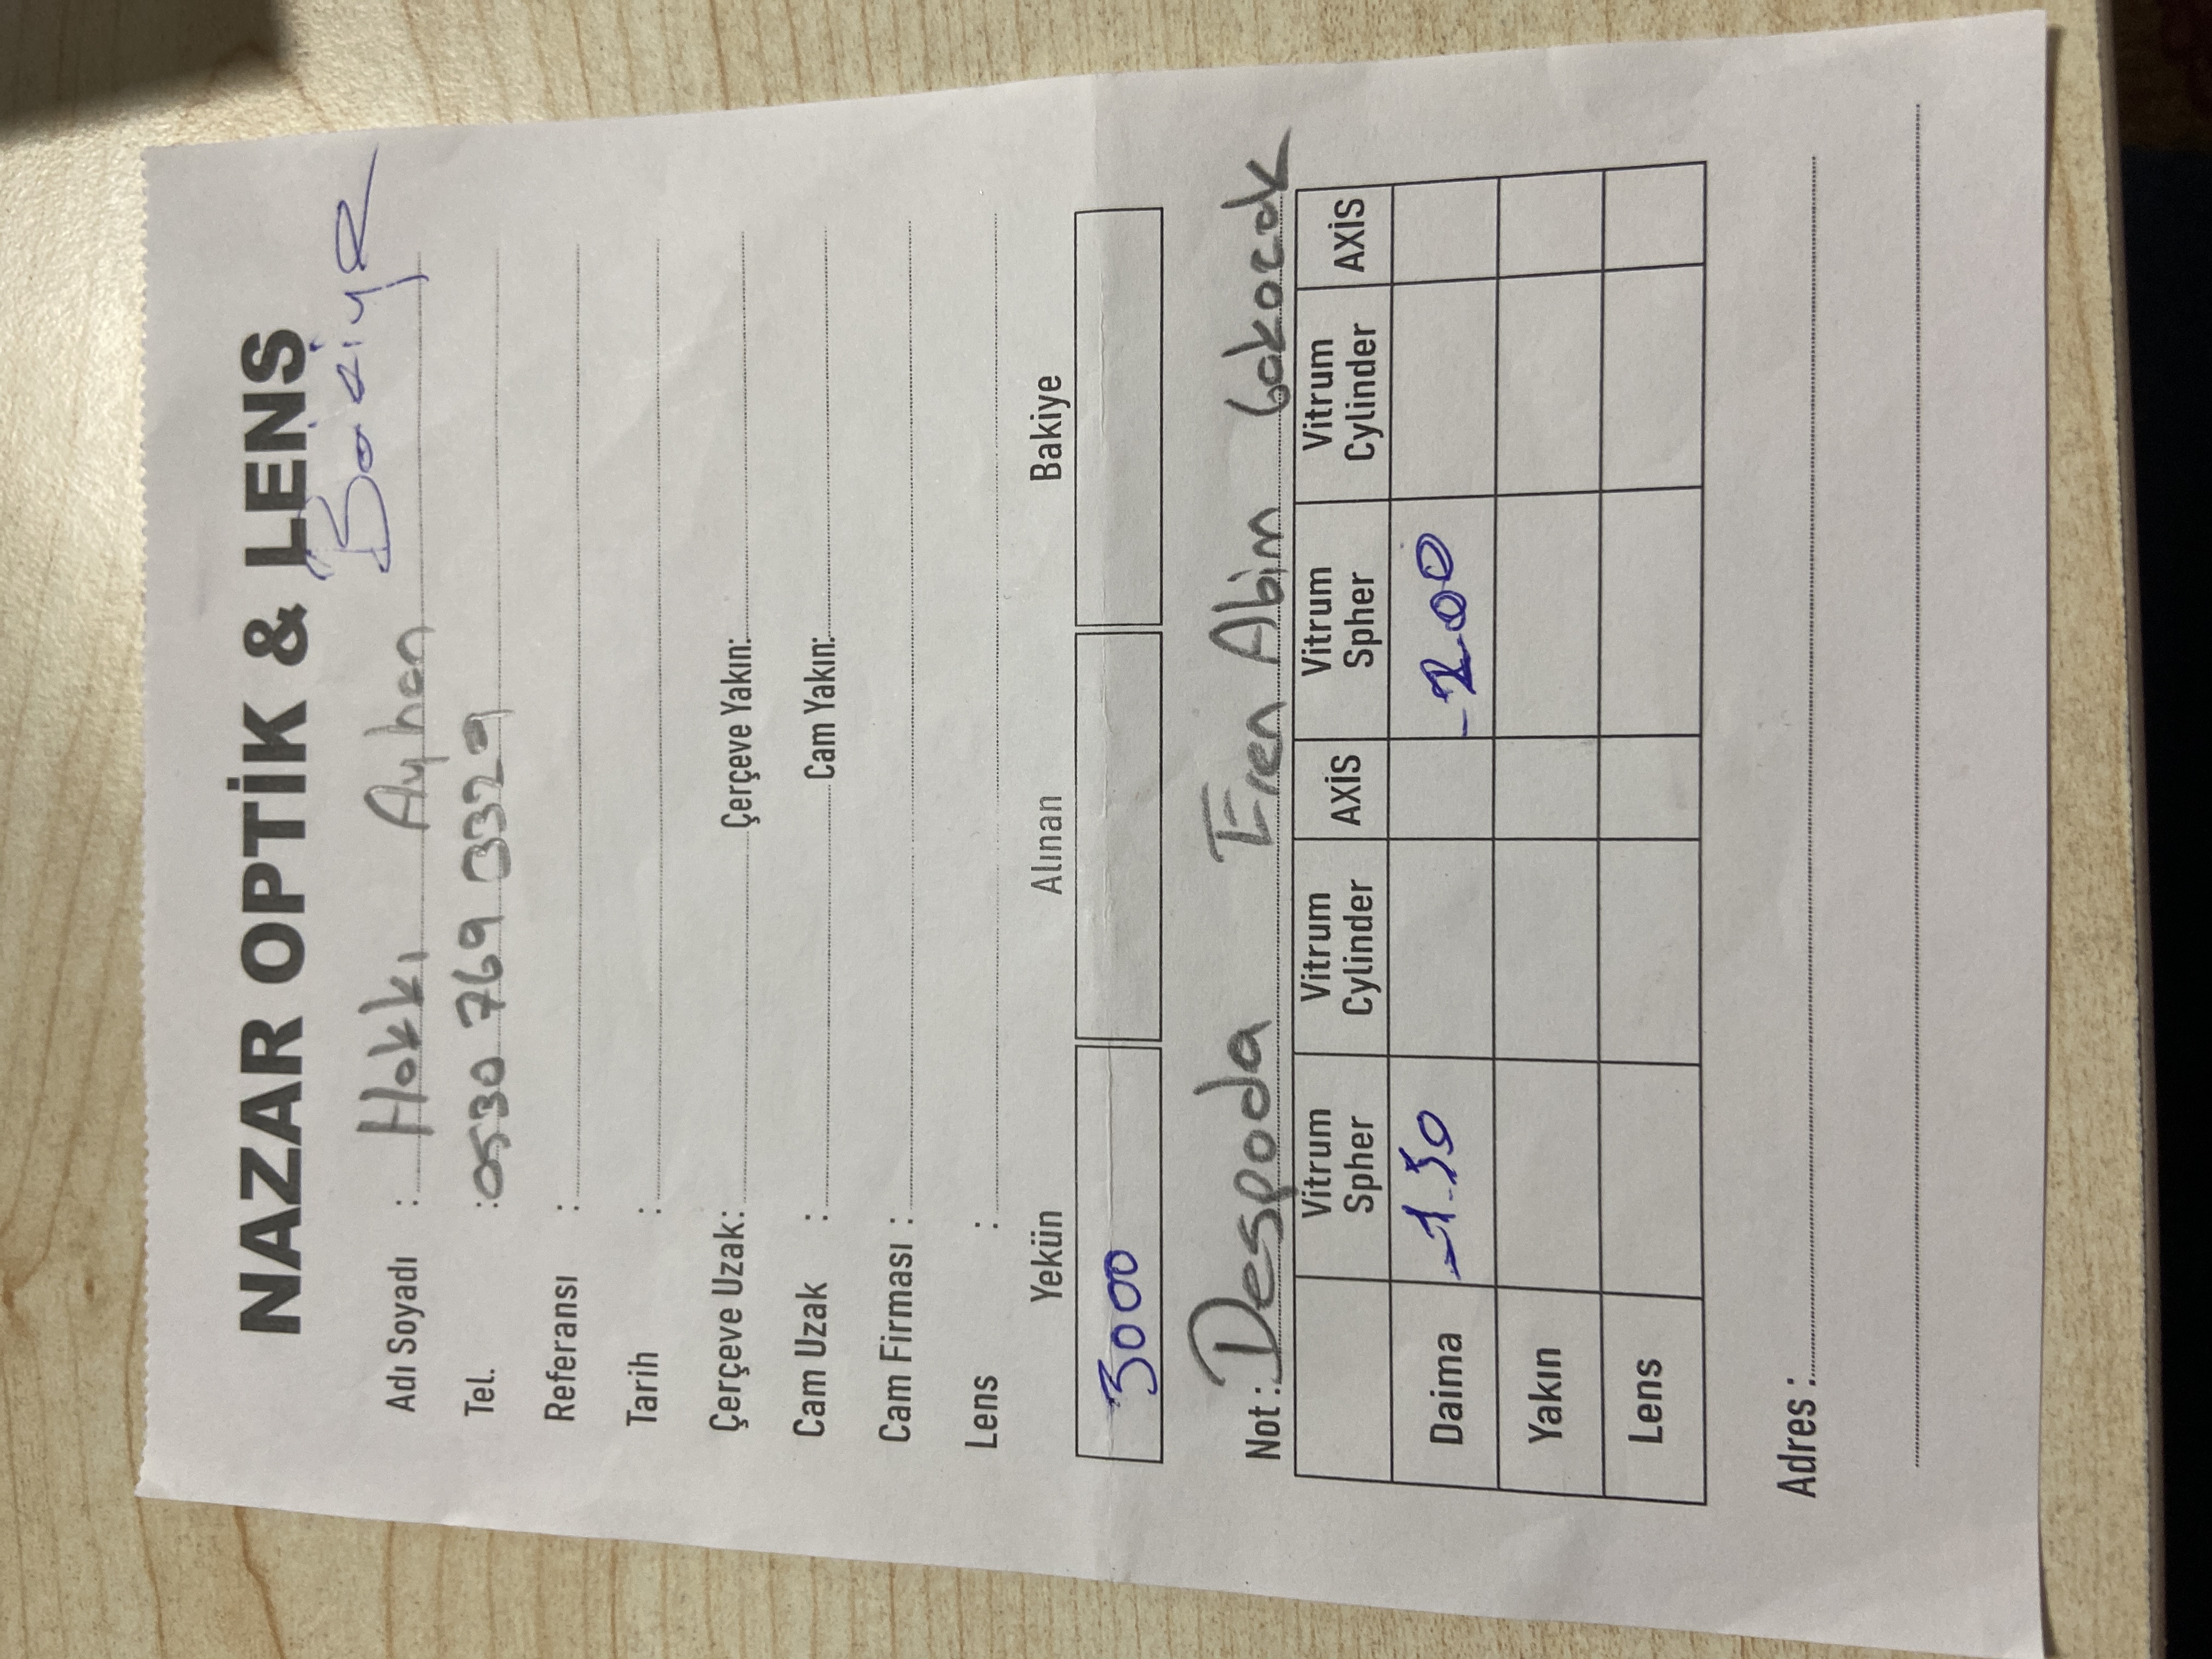 NAZAR OPTİK & LENS
Bakiye
Adı Soyadı : Hakkı Ayhan
Tel. : 0530 769 3329
Referansı :
Tarih :
Çerçeve Uzak: Çerçeve Yakın:
Cam Uzak : Cam Yakın:
Cam Firması :
Lens :
Yekün Alınan Bakiye
3000
Not : Despoda Eren Abim bakacak
Vitrum Spher Vitrum Cylinder AXİS Vitrum Spher Vitrum Cylinder AXİS
Daima -1.50 -2.00
Yakın
Lens
Adres :